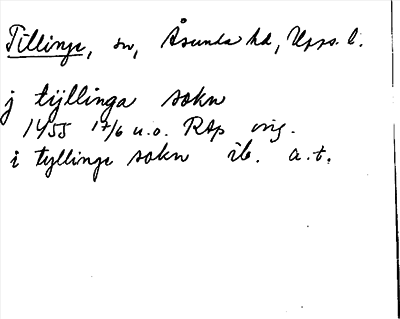 Tillinge, sn, Åsunda hd, Upps. l.
j tÿllinga sokn
1455 17/6 u.o. RAp orig.
i tyllinge sokn ib. a.t.